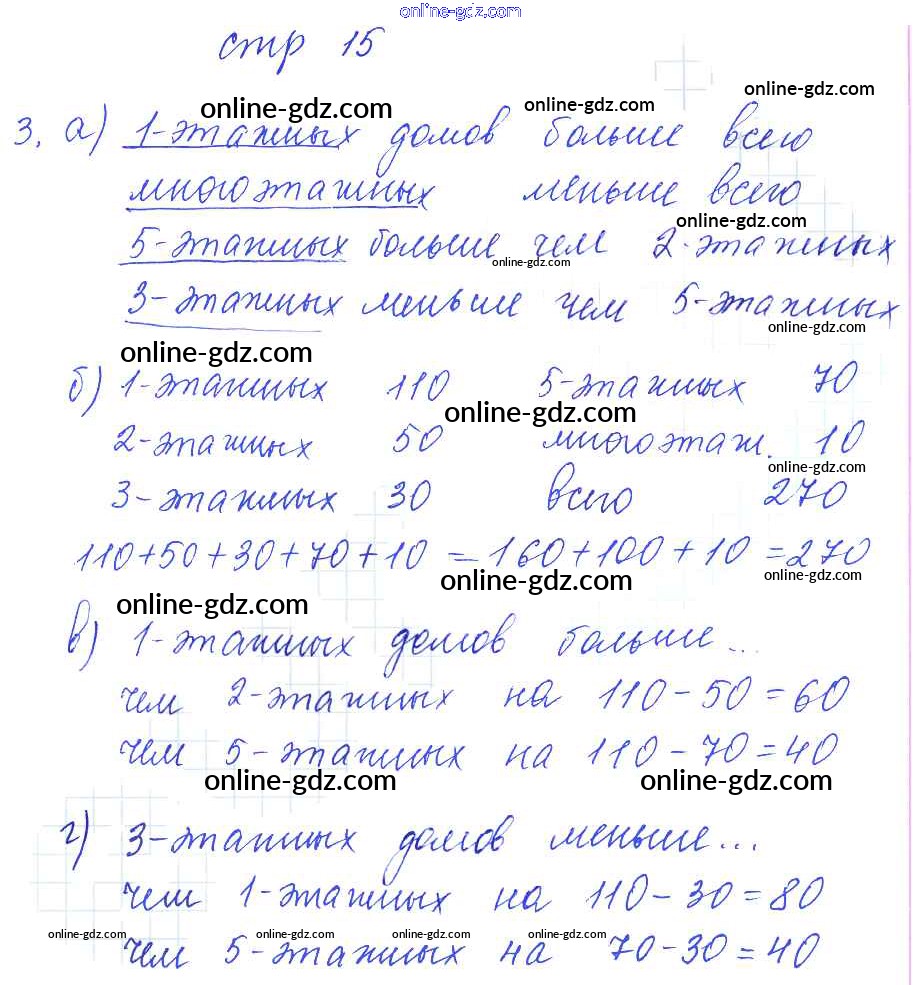 online-gdz.com
стр 15
online-gdz.com online-gdz.com online-gdz.com
3. а) 1-этажных домов больше всего
многоэтажных меньше всего
online-gdz.com
5-этажных больше чем 2-этажных
online-gdz.com
3-этажных меньше чем 5-этажных
online-gdz.com
online-gdz.com
б) 1-этажных 110 5-этажных 70
online-gdz.com
2-этажных 50 многоэтаж. 10
online-gdz.com
3-этажных 30 всего 270
110+50+30+70+10 = 160+100+10 = 270
online-gdz.com online-gdz.com
online-gdz.com
в) 1-этажных домов больше...
чем 2-этажных на 110-50=60
чем 5-этажных на 110-70=40
online-gdz.com online-gdz.com
г) 3-этажных домов меньше...
чем 1-этажных на 110-30=80
online-gdz.com online-gdz.com online-gdz.com online-gdz.com
чем 5-этажных на 70-30=40